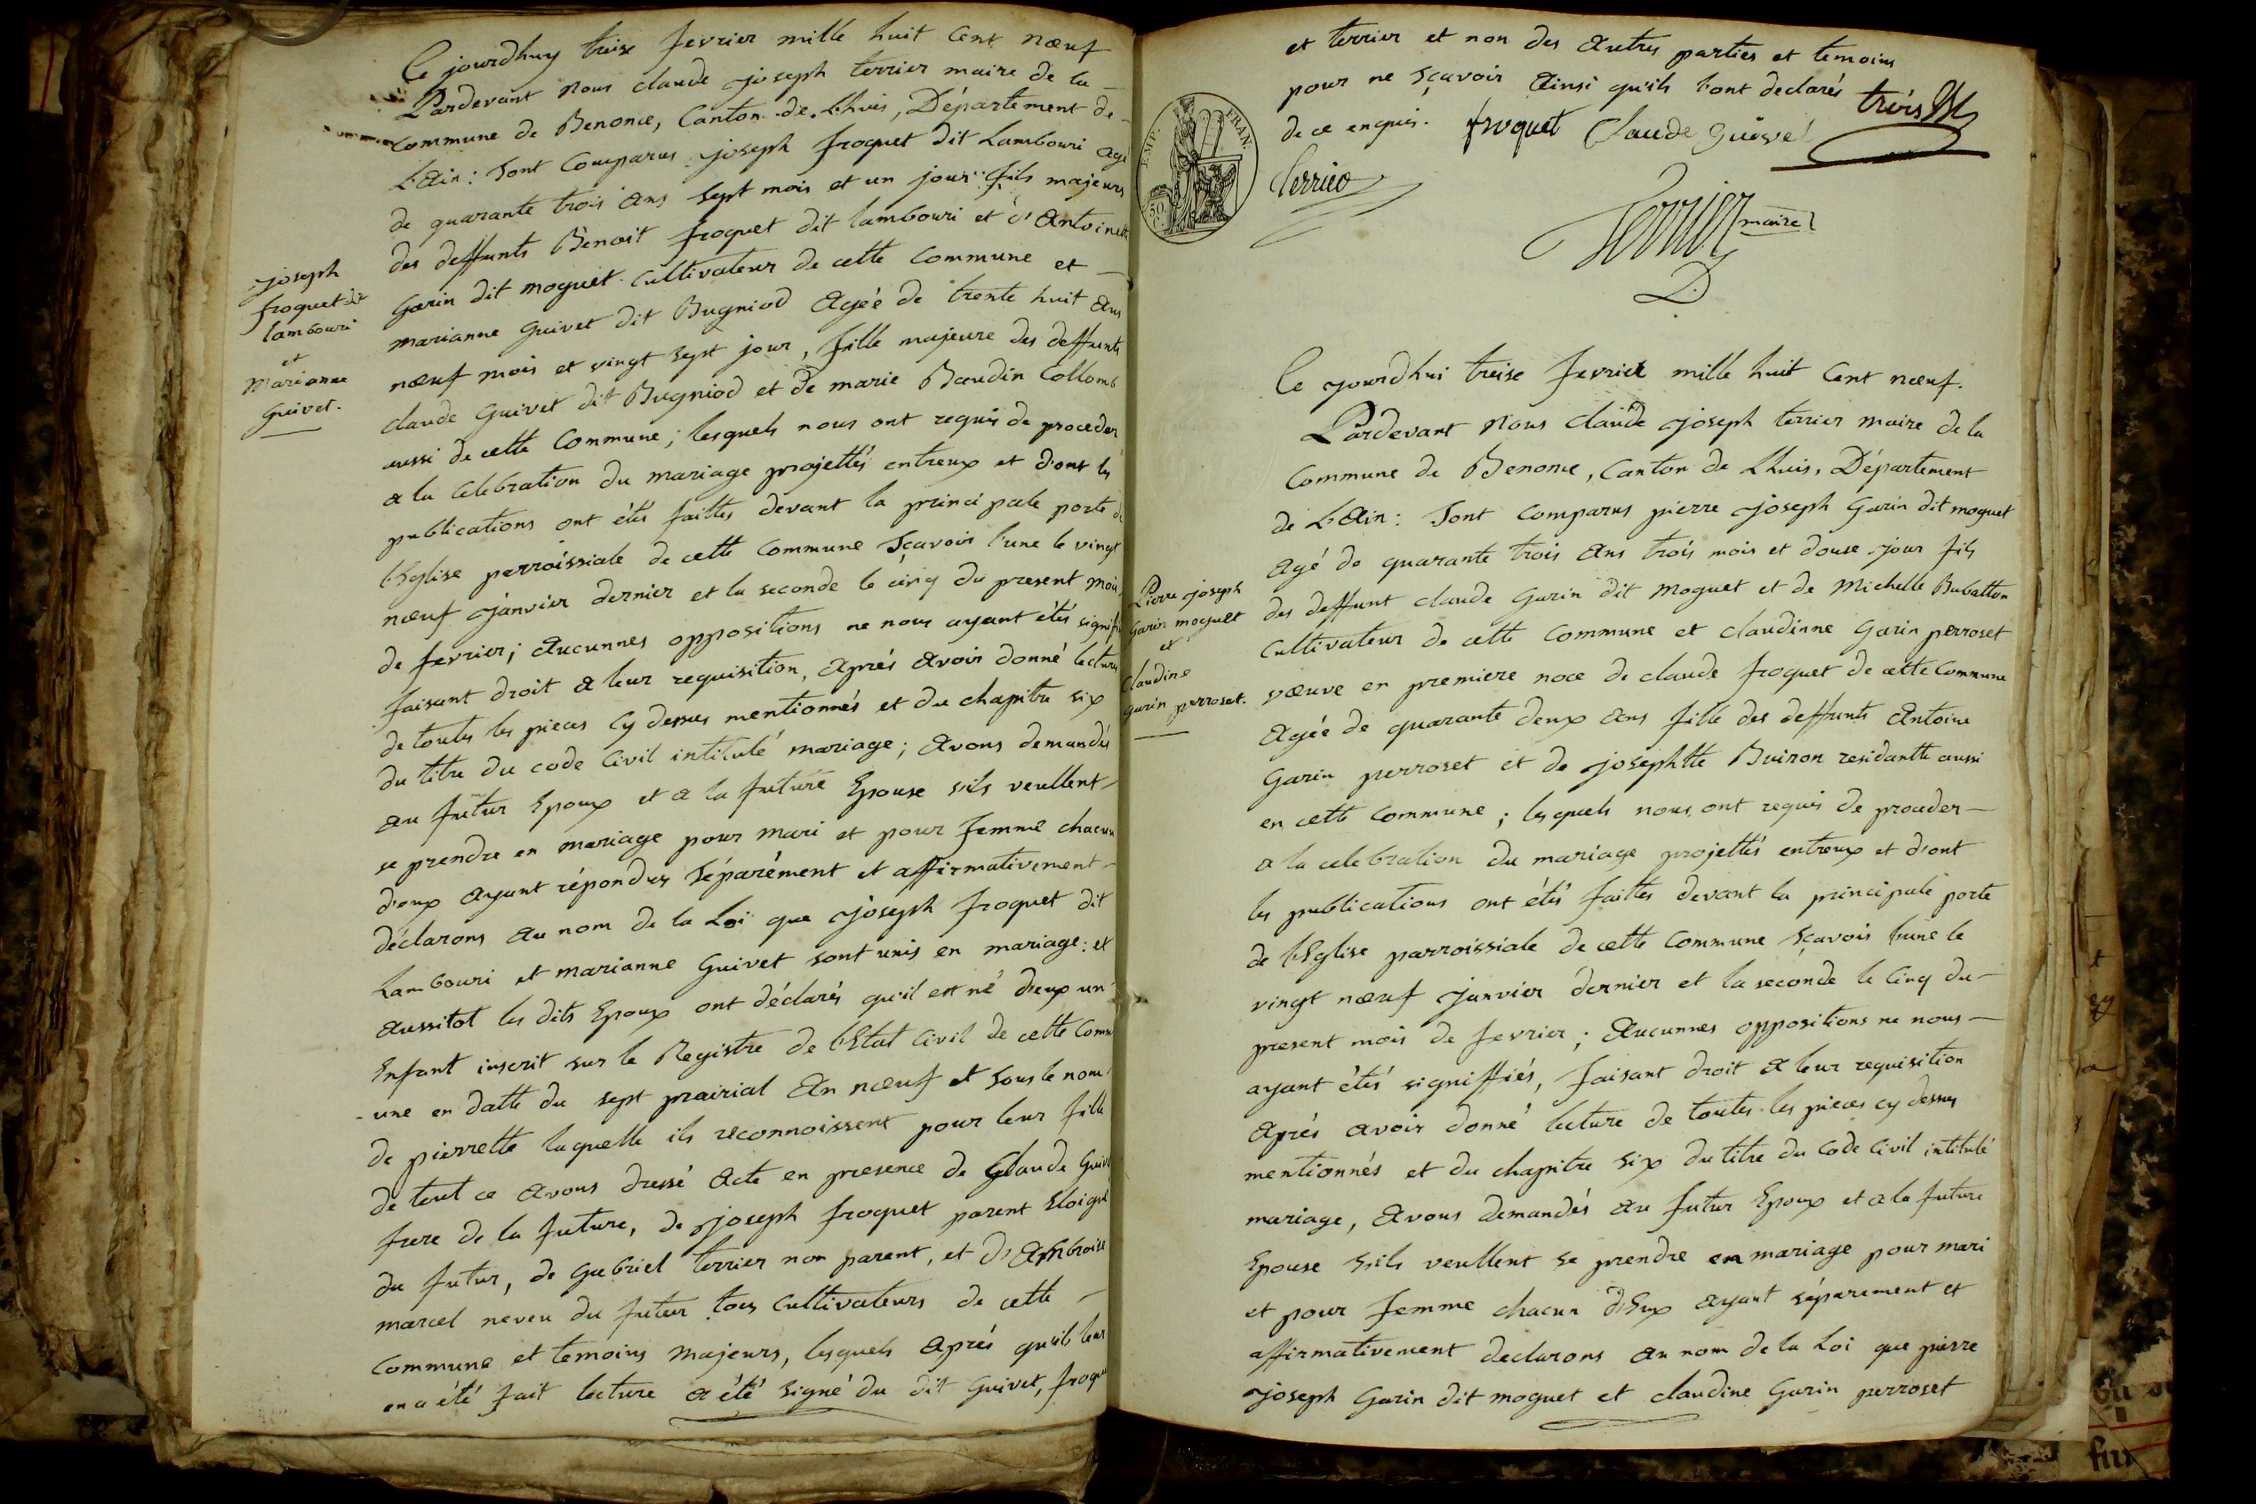 Ce jourdhuy treise fevrier mille huit Cent nœuf
Pardevant Nous claude joseph terrier maire de la
commune de Benonce, Canton de Lhuis, Département de
L'Ain: Sont Comparus joseph froquet dit Lambouri agé
de quarante trois Ans sept mois et un jour fils majeur
des deffunts Benoit froquet dit lambouri et d'Antoinette
Garin dit moguet Cultivateur de cette Commune et
marianne Guivet dit Bugniod Agée de trente huit Ans
nœuf mois et vingt sept jour, fille majeure des deffunts
claude Guivet dit Bugniod et de marie Bœudin Collomb
aussi de cette Commune; lesquels nous ont requis de proceder
a la Celebration du mariage projettés entreux et d'ont les
publications ont étés faittes devant la principale porte de
l'Eglise perroissiale de cette Commune Sçavoir l'une le vingt
nœuf janvier dernier et la seconde le cinq du present mois
de fevrier; Aucunnes oppositions ne nous ayant étés signifié
faisant droit a leur requisition, Aprés Avoir donné lecture
de toutes les pieces Cy dessus mentionnés et du chapitre six
du titre du code Civil intitulé mariage; Avons demandés
au futur Epoux et a la future Epouse s'ils veullent
se prendre en mariage pour mari et pour femme chacun
d'eux Ayant répondus Séparément et affirmativement
déclarons Au nom de la Loi que joseph froquet dit
Lambouri et marianne Guivet sont unis en mariage: et
Aussitot les dits Epoux ont déclarés qu'il est né d'eux un
Enfant inscrit sur le Registre de l'Etat Civil de cette Comm
-une en datte du sept prairial An nœuf et sous le nom
de pierrette laquelle ils reconnoissent pour leur fille
de tout ce Avons dressé Acte en presence de Claude Guivet
frere de la future, de joseph froquet parent Eloigné
du futur, de Gabriel terrier non parent, et d'Ambroise
marcel neveu du futur tous Cultivateurs de cette
Commune et temoins majeurs, lesquels Aprés qu'il leur
en a été fait lecture a été Signé du dit Guivet, froquet
joseph
froquet dit
lambouri
et
Marianne
Guivet.
et terrier et non des Autres parties et temoins
pour ne Sçavoir Ainsi qu'ils l'ont declarés
de ce enquis. froquet Claude Guivet
terrier
EMP. FRAN.
50 C.
Terrier maire
Ce jourdhui treise fevrier mille huit Cent nœuf.
Pardevant Nous claude joseph terrier maire de la
Commune de Benonce, Canton de Lhuis, Département
de L'Ain: Sont Comparus pierre joseph Garin dit moguet
Agé de quarante trois Ans trois mois et douse jour fils
des deffunt claude Garin dit moguet et de Michelle Babatton
Cultivateur de cette Commune et claudinne Garin perroset
vœuve en premiere noce de claude froquet de cette Commune
Agée de quarante deux Ans fille des deffunts Antoine
Garin perroset et de josephtte Buiron residantte aussi
en cette Commune; lesquels nous ont requis de proceder
a la celebration du mariage projettés entreux et d'ont
les publications ont étés faittes devant la principale porte
de l'Eglise parroissiale de cette Commune Sçavoir l'une le
vingt nœuf janvier dernier et la seconde le Cinq du
present mois de fevrier; Aucunnes oppositions ne nous
ayant étés signiffiés, faisant droit a leur requisition
Aprés avoir donné lecture de toutes les pieces cy dessus
mentionnés et du chapitre six du titre du Code Civil intitulé
mariage, Avons demandés au futur Epoux et a la future
Epouse s'ils veullent se prendre en mariage pour mari
et pour femme chacun d'Eux Ayant séparement et
affirmativement declarons au nom de la Loi que pierre
joseph Garin dit moguet et claudine Garin perroset
Pierre joseph
Garin moguet
et
Claudine
garin perroset.